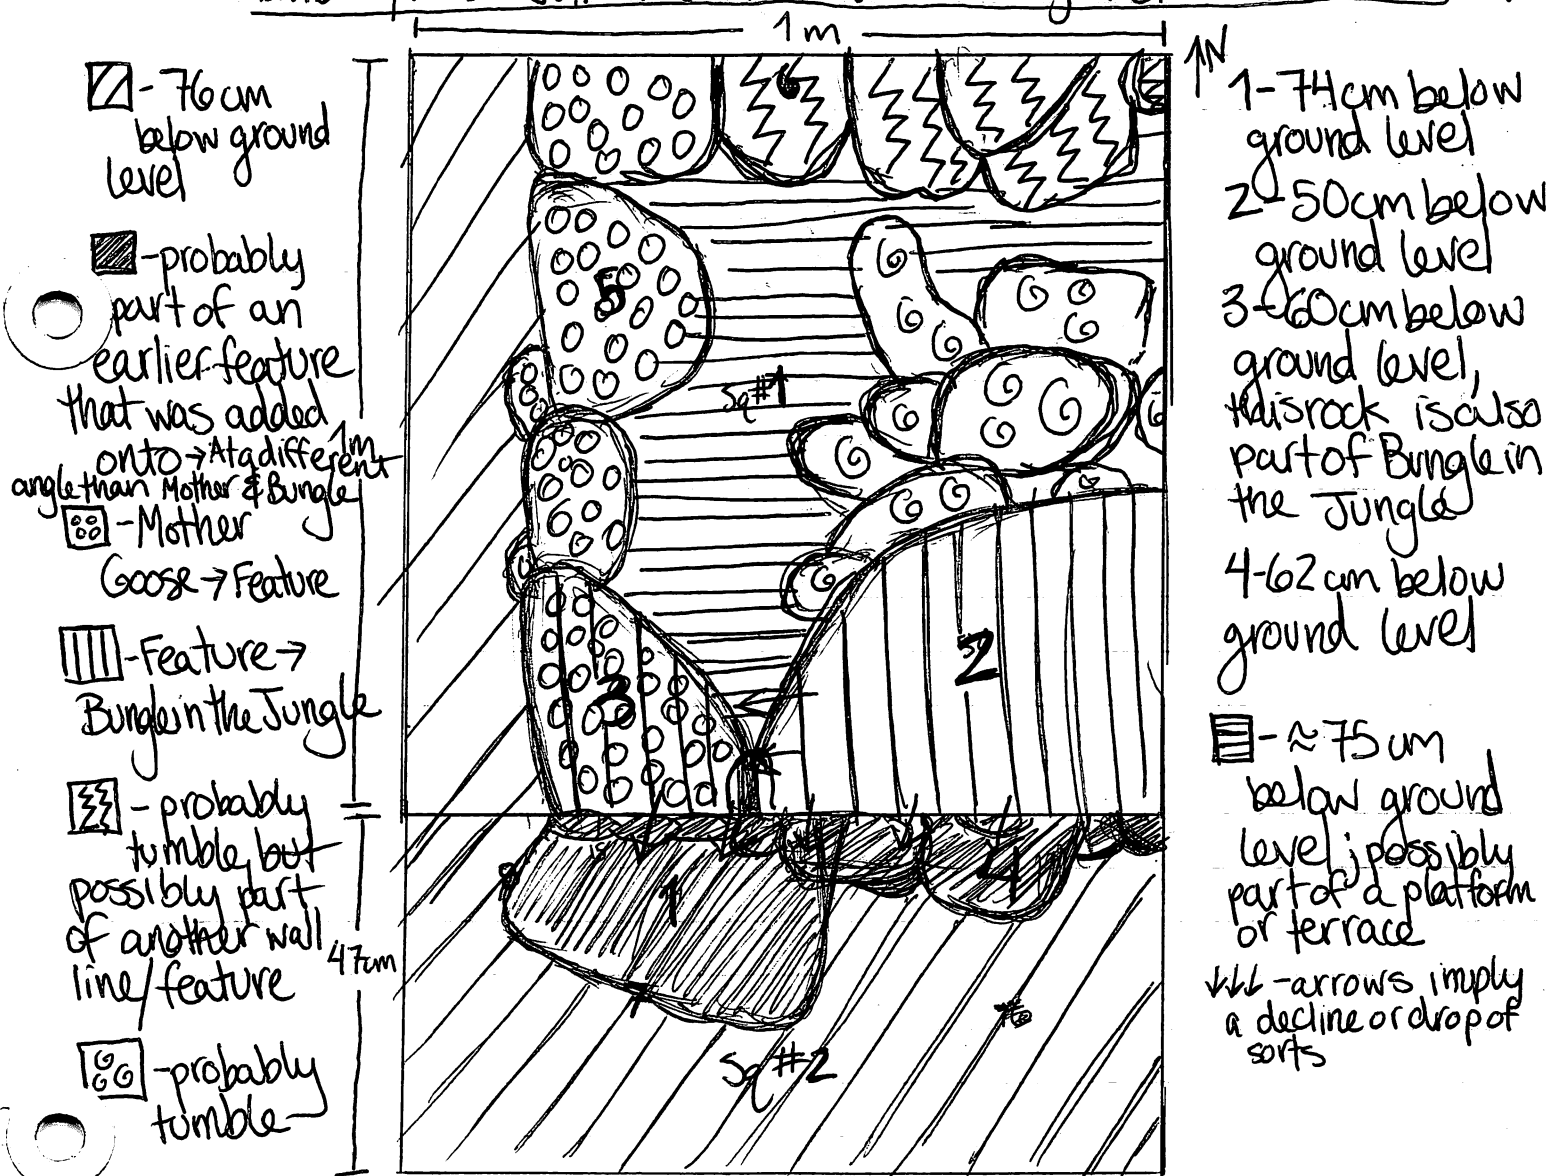 1m
N
- 76cm
below ground
level
- probably
part of an
earlier feature
that was added
onto → At a different
angle than Mother & Bungle
- Mother
Goose → Feature
- Feature →
Bungle in the Jungle
- probably
tumble, but
possibly part
of another wall
line/feature
- probably
tumble
1m
47cm
5
Sq #1
2
3
1
4
Sq #2
1-74cm below
ground level
2-50cm below
ground level
3-60cm below
ground level,
this rock is also
part of Bungle in
the Jungle
4-62cm below
ground level
- ≈75cm
below ground
level; possibly
part of a platform
or terrace
↓↓↓ -arrows imply
a decline or drop of
sorts